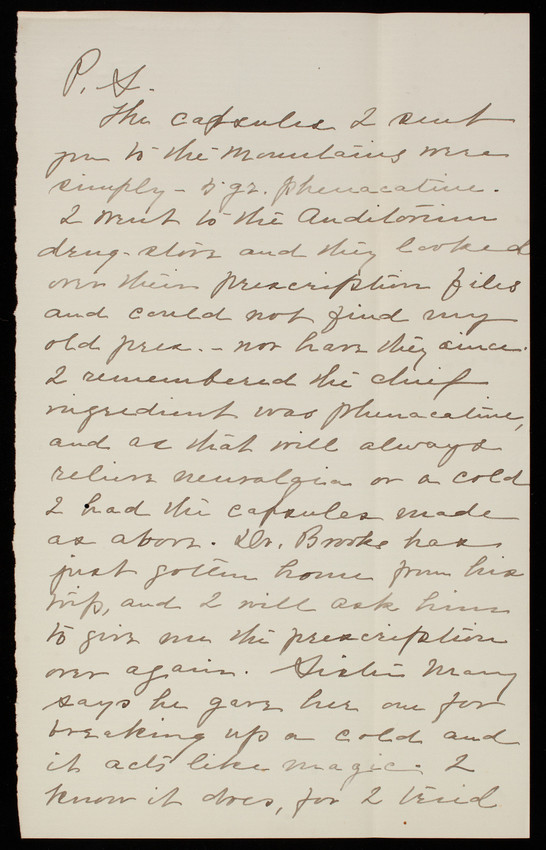 P. S.
The capsules I sent
you to the mountains were
simply - 5 gr. phenacatine.
I went to the Auditorium
drug-store and they looked
over their prescription files
and could not find my
old pres. - nor have they since.
I remembered the chief
ingredient was phenacatine,
and as that will always
relieve neuralgia or a cold
I had the capsules made
as above. Dr. Brooks has
just gotten home from his
trip, and I will ask him
to give me the prescription
over again. Sister Mary
says he gave her one for
breaking up a cold and
it acts like magic. I
know it does, for I tried